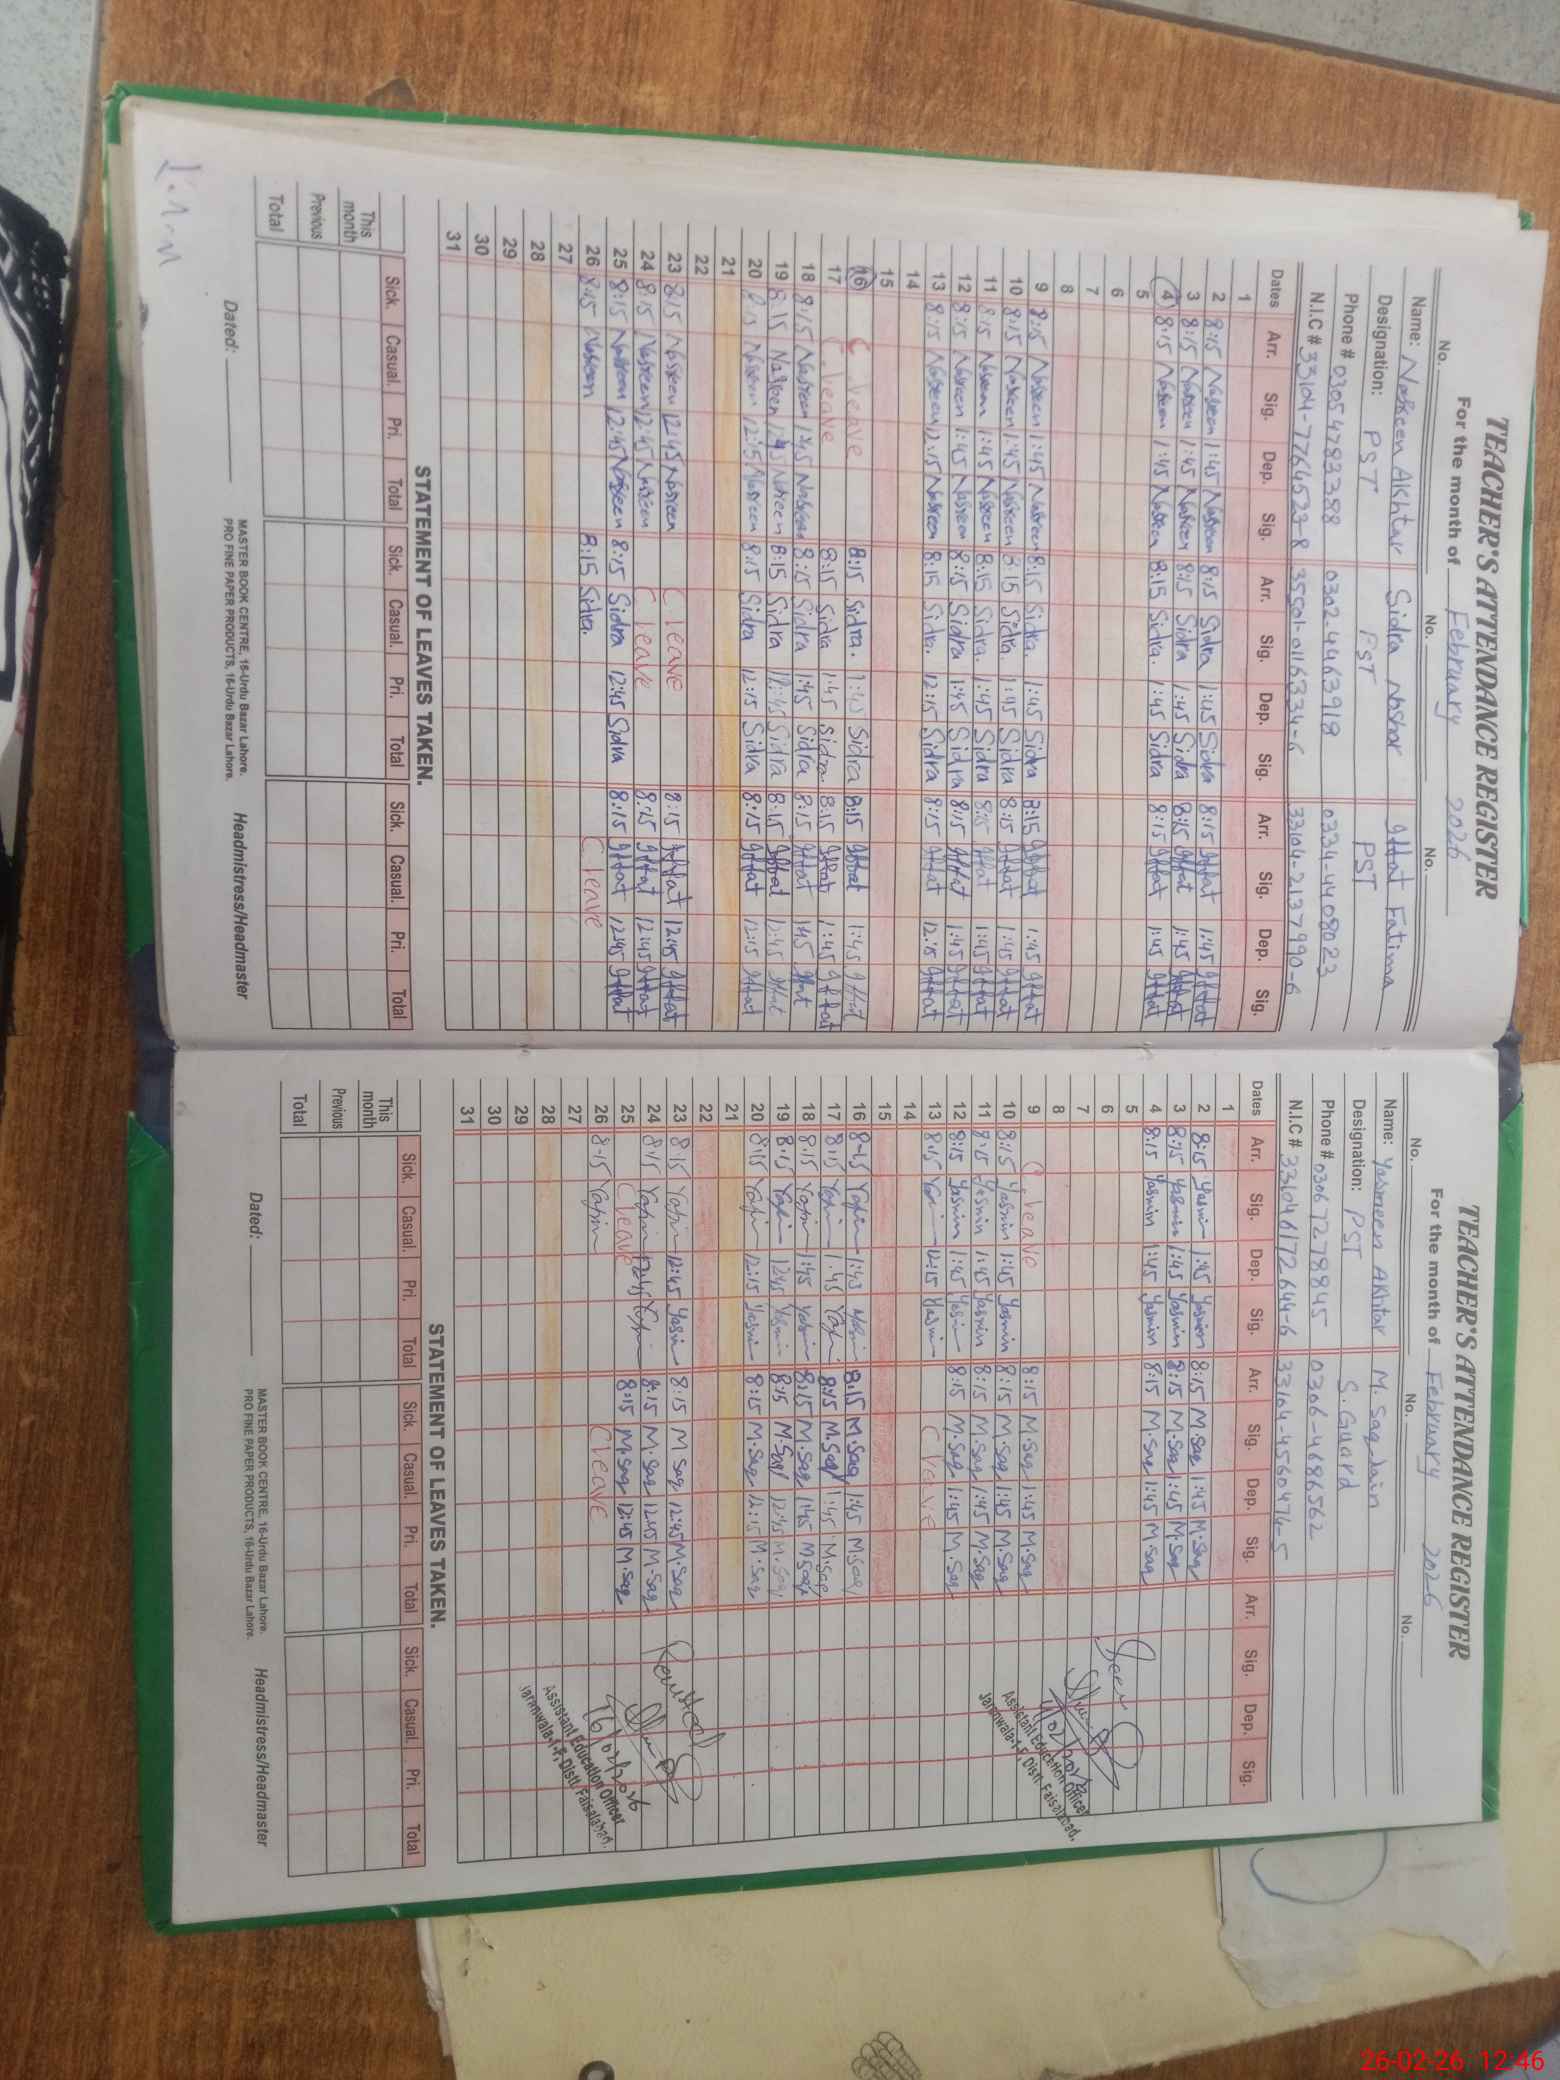 TEACHER'S ATTENDANCE REGISTER
For the month of February 2026
No. No. No.
Name: Nasreen Akhtar Sidra Noshar Iffat Fatima
Designation: PST EST PST
Phone # 0305 4783388 0302-4463918 0334-4408023
N.I.C # 33104-7764523-8 35501-0116334-6 33104-2137990-6
Dates Arr. Sig. Dep. Sig. Arr. Sig. Dep. Sig. Arr. Sig. Dep. Sig.
1
2 8:15 Nasreen 1:45 Nasreen 8:15 Sidra 1:45 Sidra 8:15 Iffat 1:45 Iffat
3 8:15 Nasreen 1:45 Nasreen 8:15 Sidra 1:45 Sidra 8:15 Iffat 1:45 Iffat
4 8:15 Nasreen 1:45 Nasreen 8:15 Sidra. 1:45 Sidra 8:15 Iffat 1:45 Iffat
5
6
7
8
9 8:15 Nasreen 1:45 Nasreen 8:15 Sidra. 1:45 Sidra 8:15 Iffat 1:45 Iffat
10 8:15 Nasreen 1:45 Nasreen 8:15 Sidra 1:45 Sidra 8:15 Iffat 1:45 Iffat
11 8:15 Nasreen 1:45 Nasreen 8:15 Sidra. 1:45 Sidra 8:15 Iffat 1:45 Iffat
12 8:15 Nasreen 1:45 Nasreen 8:15 Sidra 1:45 Sidra 8:15 Iffat 1:45 Iffat
13 8:15 Nasreen 12:15 Nasreen 8:15 Sidra. 12:15 Sidra 8:15 Iffat 12:15 Iffat
14
15
16 C leave 8:15 Sidra. 1:45 Sidra 8:15 Iffat 1:45 Iffat
17 C leave 8:15 Sidra 1:45 Sidra. 8:15 Iffat 1:45 Iffat
18 8:15 Nasreen 1:45 Nasreen 8:15 Sidra 1:45 Sidra 8:15 Iffat 1:45 Iffat
19 8:15 Nasreen 12:45 Nasreen 8:15 Sidra 12:45 Sidra 8:15 Iffat 12:45 Iffat
20 8:15 Nasreen 12:15 Nasreen 8:15 Sidra 12:15 Sidra 8:15 Iffat 12:15 Iffat
21
22
23 8:15 Nasreen 12:45 Nasreen C leave 8:15 Iffat 12:45 Iffat
24 8:15 Nasreen 12:45 Nasreen C leave 8:15 Iffat 12:45 Iffat
25 8:15 Nasreen 12:45 Nasreen 8:15 Sidra 12:45 Sidra 8:15 Iffat 12:45 Iffat
26 8:15 Nasreen 8:15 Sidra. C leave
27
28
29
30
31
STATEMENT OF LEAVES TAKEN.
Sick. Casual. Pri. Total Sick. Casual. Pri. Total Sick. Casual. Pri. Total
This month
Previous
Total
MASTER BOOK CENTRE, 16-Urdu Bazar Lahore.
PRO FINE PAPER PRODUCTS, 16-Urdu Bazar Lahore.
Dated: Headmistress/Headmaster
TEACHER'S ATTENDANCE REGISTER
For the month of February 2026
No. No. No.
Name: Yasmeen Akhtar M. Saqlain
Designation: PST S. Guard
Phone # 0306 7278845 0306-4686562
N.I.C # 33104 6172644-6 33104-4560474-5
Dates Arr. Sig. Dep. Sig. Arr. Sig. Dep. Sig. Arr. Sig. Dep. Sig.
1
2 8:15 Yasmin 1:45 Yasmin 8:15 M.Saq 1:45 M.Saq
3 8:15 Yasmin 1:45 Yasmin 8:15 M.Saq 1:45 M.Saq
4 8:15 Yasmin 1:45 Yasmin 8:15 M.Saq 1:45 M.Saq
5
6
7
8
9 C leave 8:15 M.Saq 1:45 M.Saq
10 8:15 Yasmin 1:45 Yasmin 8:15 M.Saq 1:45 M.Saq
11 8:15 Yasmin 1:45 Yasmin 8:15 M.Saq 1:45 M.Saq
12 8:15 Yasmin 1:45 Yasmin 8:15 M.Saq 1:45 M.Saq
13 8:15 Yasmin 12:15 Yasmin C leave
14
15
16 8:15 Yasmin 1:45 Yasmin 8:15 M.Saq 1:45 M.Saq
17 8:15 Yasmin 1:45 Yasmin 8:15 M.Saq 1:45 M.Saq
18 8:15 Yasmin 1:45 Yasmin 8:15 M.Saq 1:45 M.Saq
19 8:15 Yasmin 12:45 Yasmin 8:15 M.Saq 12:45 M.Saq
20 8:15 Yasmin 12:15 Yasmin 8:15 M.Saq 12:15 M.Saq
21
22
23 8:15 Yasmin 12:45 Yasmin 8:15 M Saq 12:45 M.Saq
24 8:15 Yasmin 12:45 Yasmin 8:15 M.Saq 12:45 M.Saq
25 C leave 8:15 M.Saq 12:45 M.Saq
26 8:15 Yasmin C leave
27
28
29
30
31
Seen
Assistant Education Officer
Jaranwala-1-F, Distt. Faisalabad.
26/02/2026
Assistant Education Officer
Jaranwala-1-F, Distt. Faisalabad.
STATEMENT OF LEAVES TAKEN.
Sick. Casual. Pri. Total Sick. Casual. Pri. Total Sick. Casual. Pri. Total
This month
Previous
Total
MASTER BOOK CENTRE, 16-Urdu Bazar Lahore.
PRO FINE PAPER PRODUCTS, 16-Urdu Bazar Lahore.
Dated: Headmistress/Headmaster
26-02-26 12:46